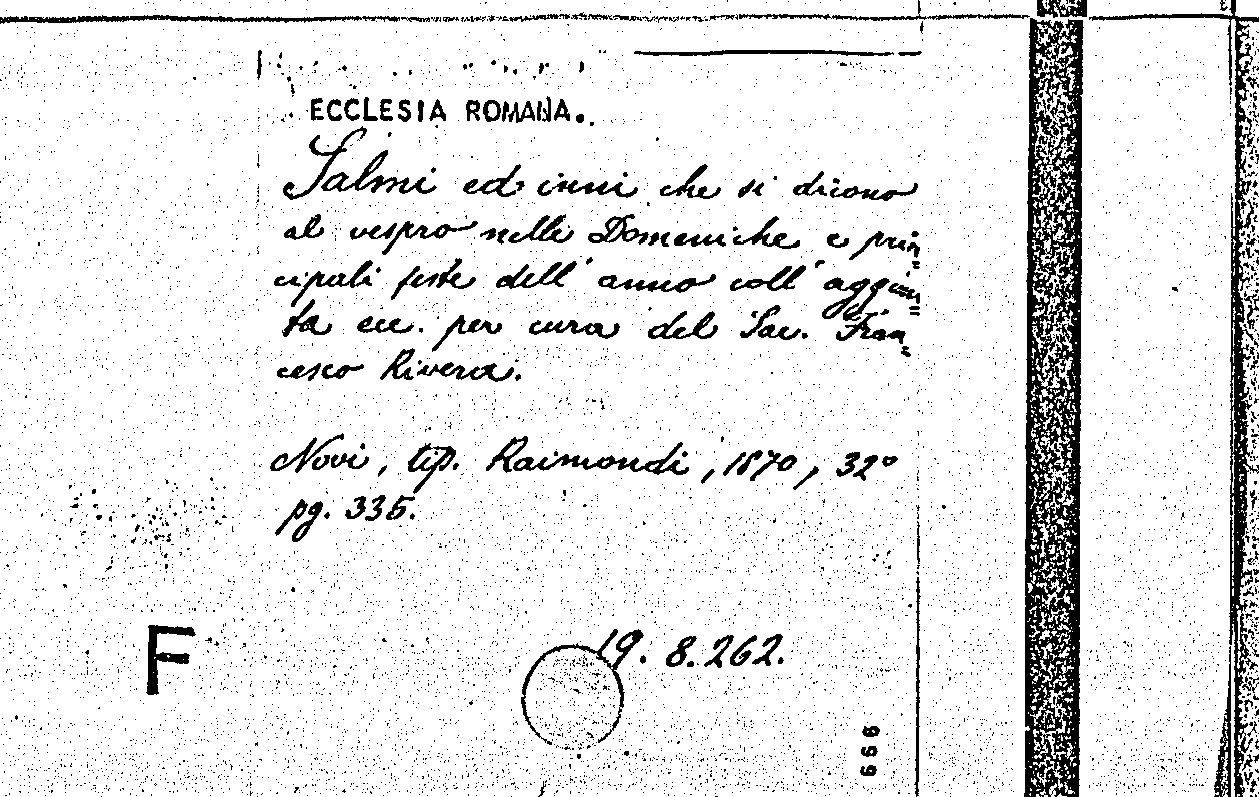 ECCLESIA ROMANA.
Salmi ed inni che si dicono
al vespro nelle Domeniche e prin=
cipali feste dell'anno coll'aggiun=
ta ecc. per cura del Sac. Fran=
cesco Rivera.
Novi, tip. Raimondi, 1870, 32°
pg. 335.
F
19. 8.262.
666